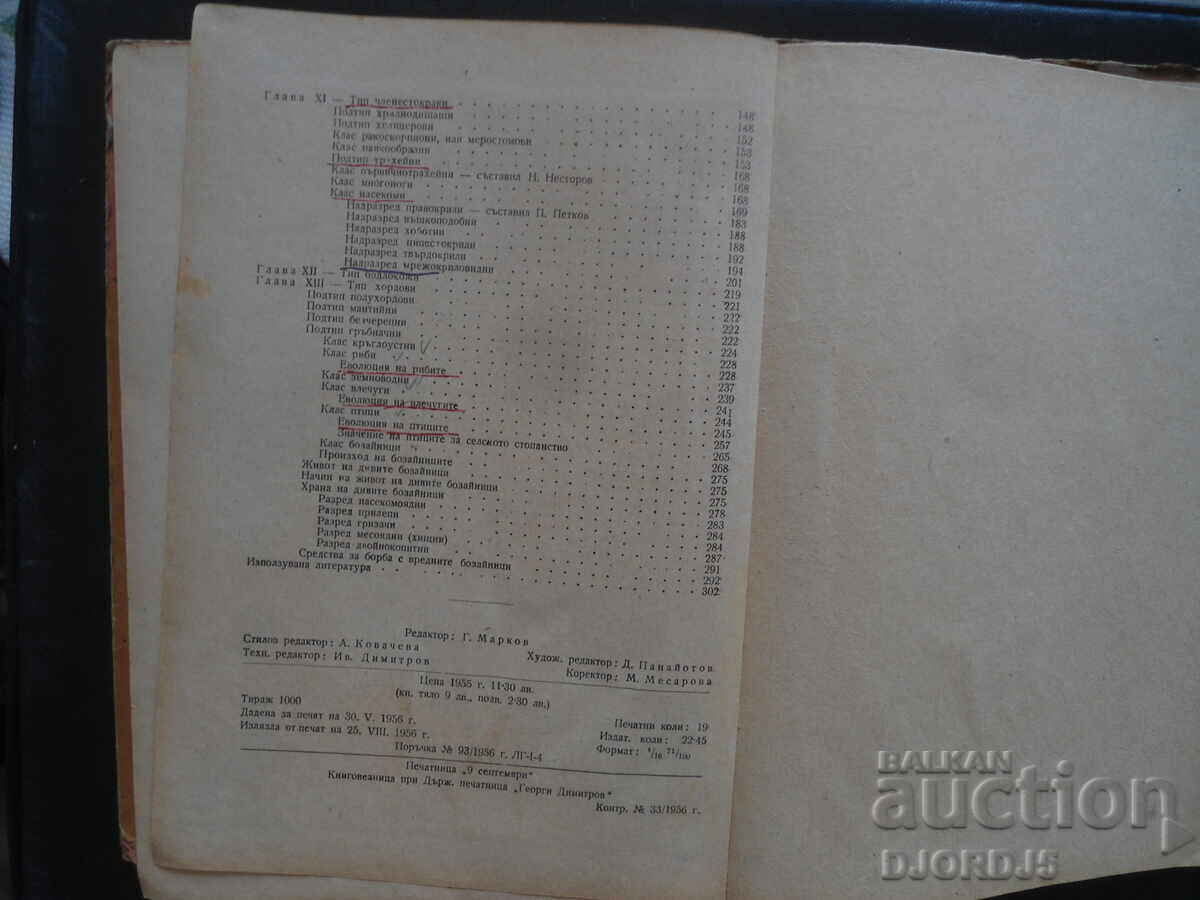 Глава XI — Тип членестокраки 148
Подтип хралнодишащи 148
Подтип хелицерови 152
Клас ракоскорпиони, или меростомови 153
Клас паякообразни 153
Подтип трахейни 168
Клас първичнотрахейни — съставил Н. Несторов 168
Клас многоноги 168
Клас насекоми 169
Надразред правокрили — съставил П. Петков 183
Надразред въшкоподобни 188
Надразред хоботни 188
Надразред ципестокрили 192
Надразред твърдокрили 194
Надразред мрежокриловидни 201
Глава XII — Тип бодлокожи 219
Глава XIII — Тип хордови 221
Подтип полухордови 222
Подтип мантийни 222
Подтип безчерепни 222
Подтип гръбначни 224
Клас кръглоустни 228
Клас риби 228
Еволюция на рибите 237
Клас земноводни 239
Клас влечуги 241
Еволюция на влечугите 244
Клас птици 245
Еволюция на птиците 257
Значение на птиците за селското стопанство 265
Клас бозайници 268
Произход на бозайниците 275
Живот на дивите бозайници 275
Начин на живот на дивите бозайници 275
Храна на дивите бозайници 278
Разред насекомоядни 283
Разред прилепи 284
Разред гризачи 284
Разред месоядни (хищни) 287
Разред двойнокопитни 291
Средства за борба с вредните бозайници 292
Използувана литература 302
Редактор: Г. Марков
Стилов редактор: А. Ковачева Худож. редактор: Д. Панайотов
Техн. редактор: Ив. Димитров Коректор: М. Месарова
Цена 1955 г. 11·30 лв.
(кн. тяло 9 лв., подв. 2·30 лв.)
Тираж 1000 Печатни коли: 19
Дадена за печат на 30. V. 1956 г. Издат. коли: 22·45
Излязла от печат на 25. VIII. 1956 г. Формат: 1/16 71/100
Поръчка № 93/1956 г. ЛГ-I-4
Печатница „9 септември“
Книговезница при Държ. печатница „Георги Димитров“
Контр. № 33/1956 г.
BALKAN
auction
DJORDJ5